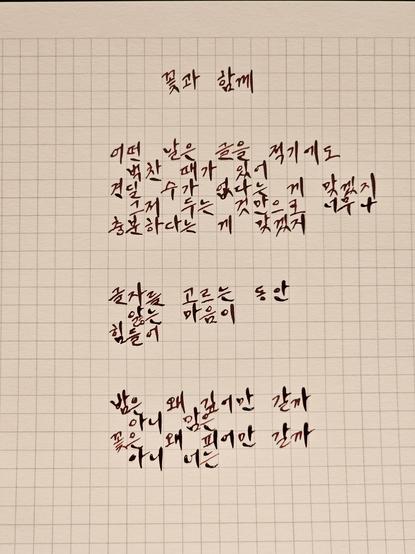 꽃과 함께
어떤 날은 글을 적기에도
벅찬 때가 있어
견딜 수가 없다는 게 맞겠지
두는 것만으로 너무나
충분하다는 게 맞겠지
글자를 고르는 동안
앓는 마음이
힘들어
밤은 왜 깊어만 갈까
아니 맘은
꽃은 왜 피어만 갈까
아니 너는